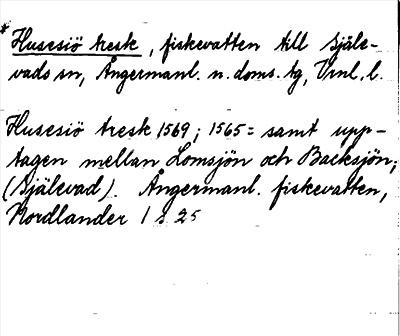 * Husesiö tresk, fiskevatten till Själe-
vads sn, Ångermanl. n. doms. tg, Vrnl. l.
Husesiö tresk 1569; 1565 = samt upp-
tagen mellan Lomsjön och Backsjön;
(Själevad). Ångermanl. fiskevatten,
Nordlander 1 s 25